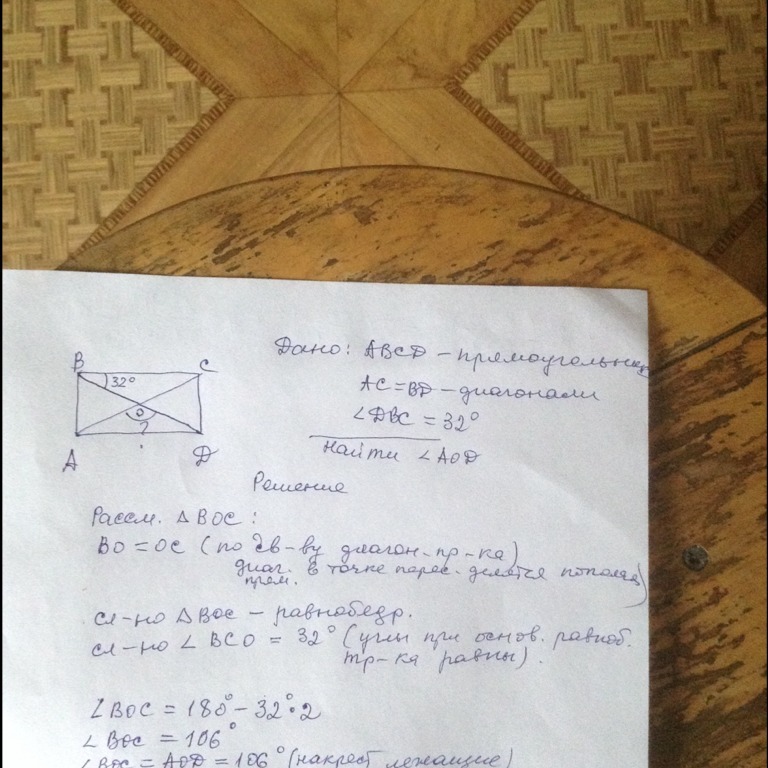 B
C
32°
O
?
A
D
Дано: ABCD – прямоугольник
AC = BD – диагонали
∠DBC = 32°
Найти ∠AOD
Решение
Рассм. △BOC :
BO = OC (по св-ву диагон. пр-ка)
диаг. в точке перес. делятся пополам)
прям.
сл-но △BOC – равнобедр.
сл-но ∠BCO = 32° (углы при основ. равноб.
тр-ка равны).
∠BOC = 180° – 32°·2
∠BOC = 106°
∠BOC = AOD = 106° (накрест лежащие)